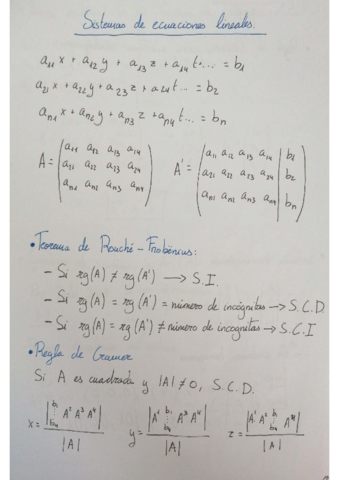 Sistemas de ecuaciones lineales.
a₁₁ x + a₁₂ y + a₁₃ z + a₁₄ t... = b₁
a₂₁ x + a₂₂ y + a₂₃ z + a₂₄ t... = b₂
aₙ₁ x + aₙ₂ y + aₙ₃ z + aₙ₄ t... = bₙ
A = ( a₁₁ a₁₂ a₁₃ a₁₄ A' = ( a₁₁ a₁₂ a₁₃ a₁₄ | b₁
a₂₁ a₂₂ a₂₃ a₂₄ a₂₁ a₂₂ a₂₃ a₂₄ | b₂
aₙ₁ aₙ₂ aₙ₃ aₙ₄ ) aₙ₁ aₙ₂ aₙ₃ aₙ₄ | bₙ )
• Teorema de Rouché - Frobënius:
- Si rg(A) ≠ rg(A') → S.I.
- Si rg(A) = rg(A') = número de incógnitas → S.C.D.
- Si rg(A) = rg(A') ≠ número de incognitas → S.C.I
• Regla de Cramer
Si A es cuadrada y |A| ≠ 0, S.C.D.
x = |b₁ bₙ A² A³ A⁴| / |A| y = |A¹ b₁ bₙ A³ A⁴| / |A| z = |A¹ A² b₁ bₙ A⁴| / |A|